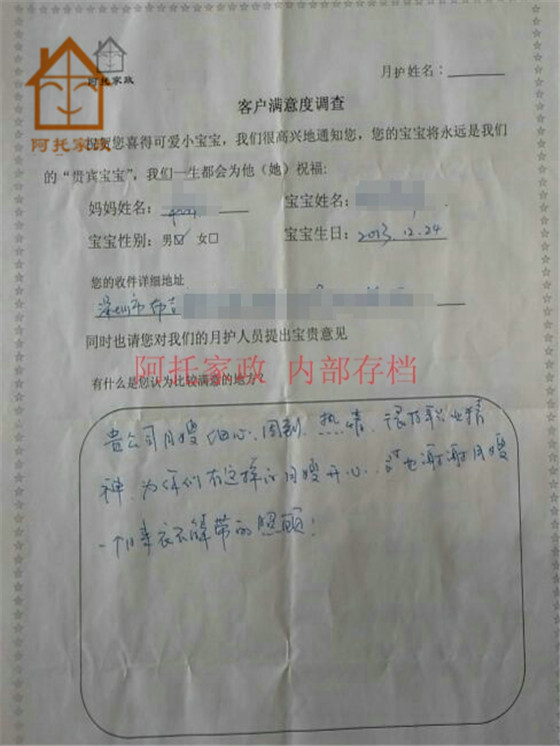 阿托家政
阿托家政
月护姓名：
客户满意度调查
祝贺您喜得可爱小宝宝，我们很高兴地通知您，您的宝宝将永远是我们
的“贵宾宝宝”，我们一生都会为他（她）祝福:
妈妈姓名： 宝宝姓名：
宝宝性别：男☑ 女☐ 宝宝生日：2013.12.24
您的收件详细地址
深圳市布吉
同时也请您对我们的月护人员提出宝贵意见
阿托家政 内部存档
有什么是您认为比较满意的地方？
贵公司月嫂细心、周到、热情、很有职业精
神，为你们有这样的月嫂开心，也谢谢月嫂
一个月来衣不解带的照顾！